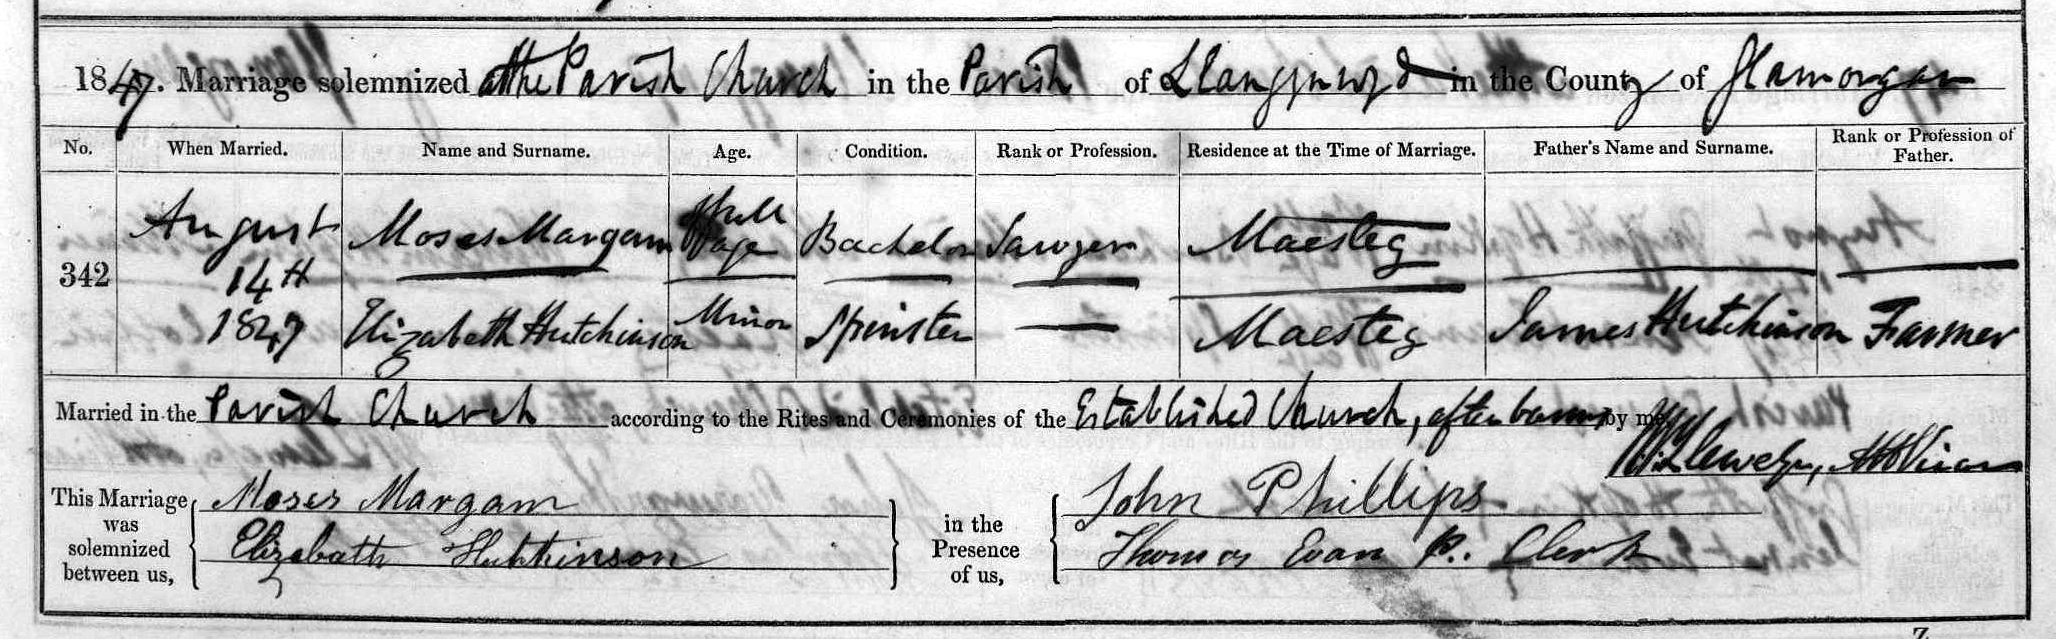 1847. Marriage solemnized at the Parish Church in the Parish of Llangynwyd in the County of Glamorgan
No. When Married. Name and Surname. Age. Condition. Rank or Profession. Residence at the Time of Marriage. Father's Name and Surname. Rank or Profession of Father.
342 August 14th 1847 Moses Margam Full age Bachelor Sawyer Maesteg
Elizabeth Hutchinson Minor Spinster — Maesteg James Hutchinson Farmer
Married in the Parish Church according to the Rites and Ceremonies of the Established Church, after banns by me,
Llewelyn, Vicar
This Marriage was solemnized between us, Moses Margam in the Presence of us, John Phillips
Elizabeth Hutchinson Thomas Evan P. Clerk
Z